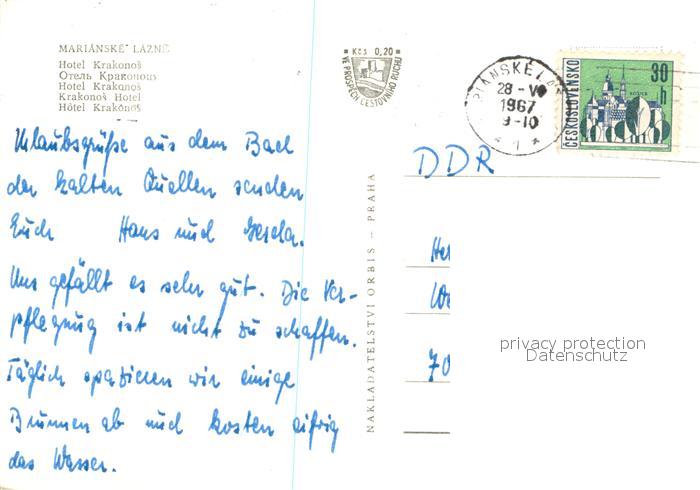 MARIÁNSKÉ LÁZNĚ
Hotel Krakonoš
Отель Краконош
Hotel Krakonoš
Krakonoš Hotel
Hôtel Krakonoš
Kčs 0,20
VE PROSPĚCH CESTOVNÍHO RUCHU
MARIÁNSKÉ LÁZ
28 - V
1967
9-10
1
ČESKOSLOVENSKO
30
h
KOŠICE
DDR
Urlaubsgrüße aus dem Bad
der kalten Quellen senden
Euch Hans und Gerda.
Uns gefällt es sehr gut. Die Ver-
pflegung ist nicht zu schaffen.
Täglich spazieren wir einige
Brunnen ab und kosten eifrig
das Wasser.
NAKLADATELSTVÍ ORBIS – PRAHA
70
privacy protection
Datenschutz